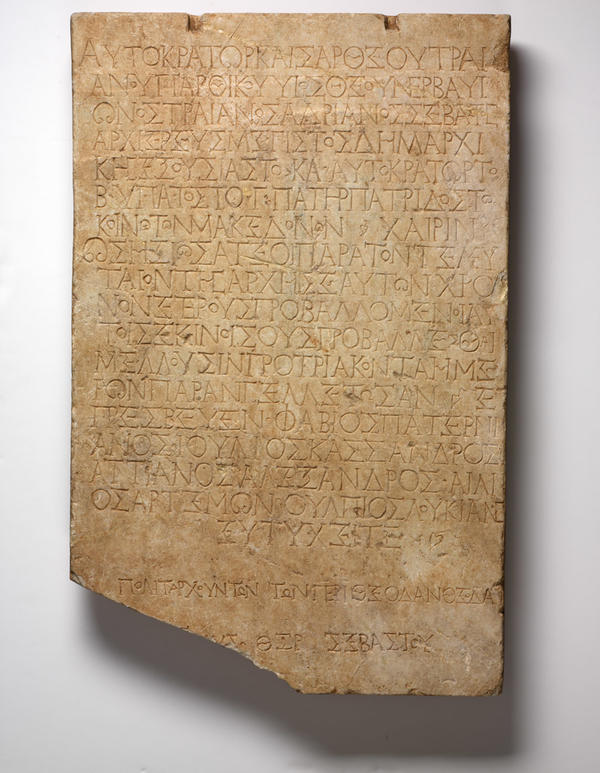 ΑΥΤΟΚΡΑΤΩΡΚΑΙΣΑΡΘΕΟΥΤΡΑΙ
ΑΝΟΥΠΑΡΘΙΚΟΥΥΙΟΣΘΕΟΥΝΕΡΒΑΥΙ
ΩΝΟΣΤΡΑΙΑΝΟΣΑΔΡΙΑΝΟΣΣΕΒΑΣΤ
ΑΡΧΙΕΡΕΥΣΜΕΓΙΣΤΟΣΔΗΜΑΡΧΙ
ΚΗΣΕΞΟΥΣΙΑΣΤΟ·ΚΑ·ΑΥΤΟΚΡΑΤΩΡΤΟ
Β·ΥΠΑΤΟΣΤΟ·Γ·ΠΑΤΗΡΠΑΤΡΙΔΟΣΤΩ
ΚΟΙΝΩΤΩΝΜΑΚΕΔΟΝΩΝ ΧΑΙΡΙΝ
ΩΣΗΞΙΩΣΑΤΕΟΙΠΑΡΑΤΟΝΤΕΛΕΥ
ΤΑΙΟΝΤΗΣΑΡΧΗΣΕΑΥΤΩΝΧΡΟ
ΝΟΝΕΤΕΡΟΥΣΠΡΟΒΑΛΛΟΜΕΝΟΙΑΥ
ΤΟΙΣΕΚΙΝΟΙΣΟΥΣΠΡΟΒΑΛΛΕΣΘΑΙ
ΜΕΛΛΟΥΣΙΝΠΡΟΤΡΙΑΚΟΝΤΑΗΜΕ
ΡΩΝΠΑΡΑΝΓΕΛΛΕΤΩΣΑΝ Ε
ΠΡΕΣΒΕΥΕΝ·ΦΑΒΙΟΣΠΑΤΕΡΝΙ
ΑΝΟΣΙΟΥΛΙΟΣΚΑΣΣΑΝΔΡΟΣ
ΑΤΤΙΑΝΟΣΑΛΕΞΑΝΔΡΟΣ·ΑΙΛΙ
ΟΣΑΡΤΕΜΩΝ·ΟΥΛΠΙΟΣΛΟΥΚΙΑΝ
ΕΥΤΥΧΕΙΤΕ
ΠΟΛΙΤΑΡΧΟΥΝΤΩΝ ΤΩΝΠΕΡΙΘΕΟΔΑΝΘΕΟΔΑ
ΟΥΣ ΘΞΡ ΣΕΒΑΣΤΟΥ